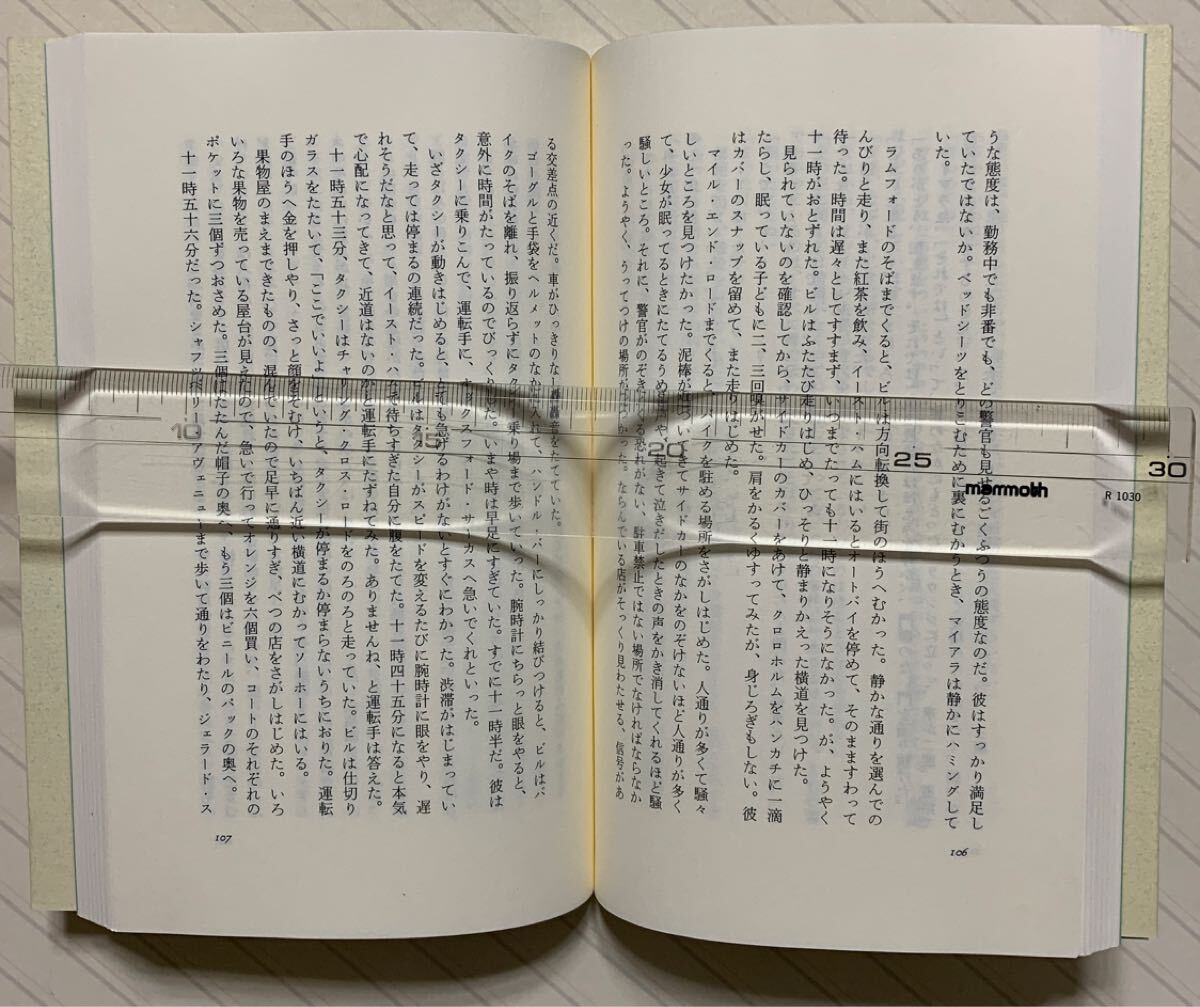 うな態度は、勤務中でも非番でも、どの警官も見せるごくふつうの態度なのだ。彼はすっかり満足し
ていたではないか。ベッドシーツをとりこむために裏にむかうとき、マイアラは静かにハミングして
いた。
ラムフォードのそばまでくると、ビルは方向転換して街のほうへむかった。静かな通りを選んでの
んびりと走り、また紅茶を飲み、イースト・ハムにはいるとオートバイを停めて、そのまますわって
待った。時間は遅々としてすすまず、いつまでたっても十一時になりそうになかった。が、ようやく
十一時がおとずれた。ビルはふたたび走りはじめ、ひっそりと静まりかえった横道を見つけた。
見られていないのを確認してから、サイドカーのカバーをあけて、クロロホルムをハンカチに一滴
たらし、眠っている子どもに二、三回嗅がせた。肩をかるくゆすってみたが、身じろぎもしない。彼
はカバーのスナップを留めて、また走りはじめた。
マイル・エンド・ロードまでくると、バイクを駐める場所をさがしはじめた。人通りが多くて騒々
しいところを見つけたかった。泥棒が近づいてきてサイドカーのなかをのぞけないほど人通りが多く
て、少女が眠ってるときにたてるうめき声や、起きて泣きだしたときの声をかき消してくれるほど騒
騒しいところ。それに、警官がのぞきにくる恐れがない、駐車禁止ではない場所でなければならなか
った。ようやく、うってつけの場所が見つかった。ならんでいる店がそっくり見わたせる、信号があ
106
る交差点の近くだ。車がひっきりなしに轟音をたてていた。
ゴーグルと手袋をヘルメットのなかに入れて、ハンドル・バーにしっかり結びつけると、ビルはバ
イクのそばを離れ、振り返らずにタクシー乗り場まで歩いていった。腕時計にちらっと眼をやると、
意外に時間がたっているのでびっくりした。いまや時は早足にすぎていた。すでに十一時半だ。彼は
タクシーに乗りこんで、運転手に、オックスフォード・サーカスへ急いでくれといった。
いざタクシーが動きはじめると、とても急げるわけがないとすぐにわかった。渋滞がはじまってい
て、走っては停まるの連続だった。ビルはタクシーがスピードを変えるたびに腕時計に眼をやり、遅
れそうだなと思って、イースト・ハムで待ちすぎた自分に腹をたてた。十一時四十五分になると本気
で心配になってきて、近道はないのかと運転手にたずねてみた。ありませんね、と運転手は答えた。
十一時五十三分、タクシーはチャリング・クロス・ロードをのろのろと走っていた。ビルは仕切り
ガラスをたたいて、「ここでいいよ」というと、タクシーが停まるか停まらないうちにおりた。運転
手のほうへ金を押しやり、さっと顔をそむけ、いちばん近い横道にむかってソーホーにはいる。
果物屋のまえまできたものの、混んでいたので足早に通りすぎ、べつの店をさがしはじめた。いろ
いろな果物を売っている屋台が見えたので、急いで行ってオレンジを六個買い、コートのそれぞれの
ポケットに三個ずつおさめた。三個はたたんだ帽子の奥へ、もう三個はビニールのパックの奥へ。
十一時五十六分だった。シャフツベリー・アヴェニューまで歩いて通りをわたり、ジェラード・ス
107
10
15
20
25
30
mammoth
R 1030